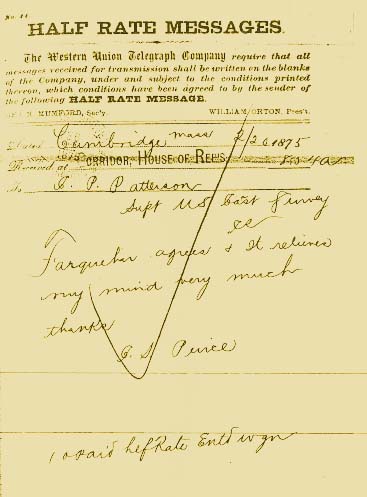 No. 44.
HALF RATE MESSAGES.
The Western Union Telegraph Company require that all
messages received for transmission shall be written on the blanks
of the Company, under and subject to the conditions printed
thereon, which conditions have been agreed to by the sender of
the following HALF RATE MESSAGE.
R. MUMFORD, Sec'y. WILLIAM ORTON, Pres't.
Dated Cambridge Mass 1875
Received at CORRIDOR, HOUSE OF REPS.
To C. P. Patterson
Supt US Cost Survey
Farquehar agrees & It relieves
my mind very much
thanks
C. S. Peirce
paid helfRate